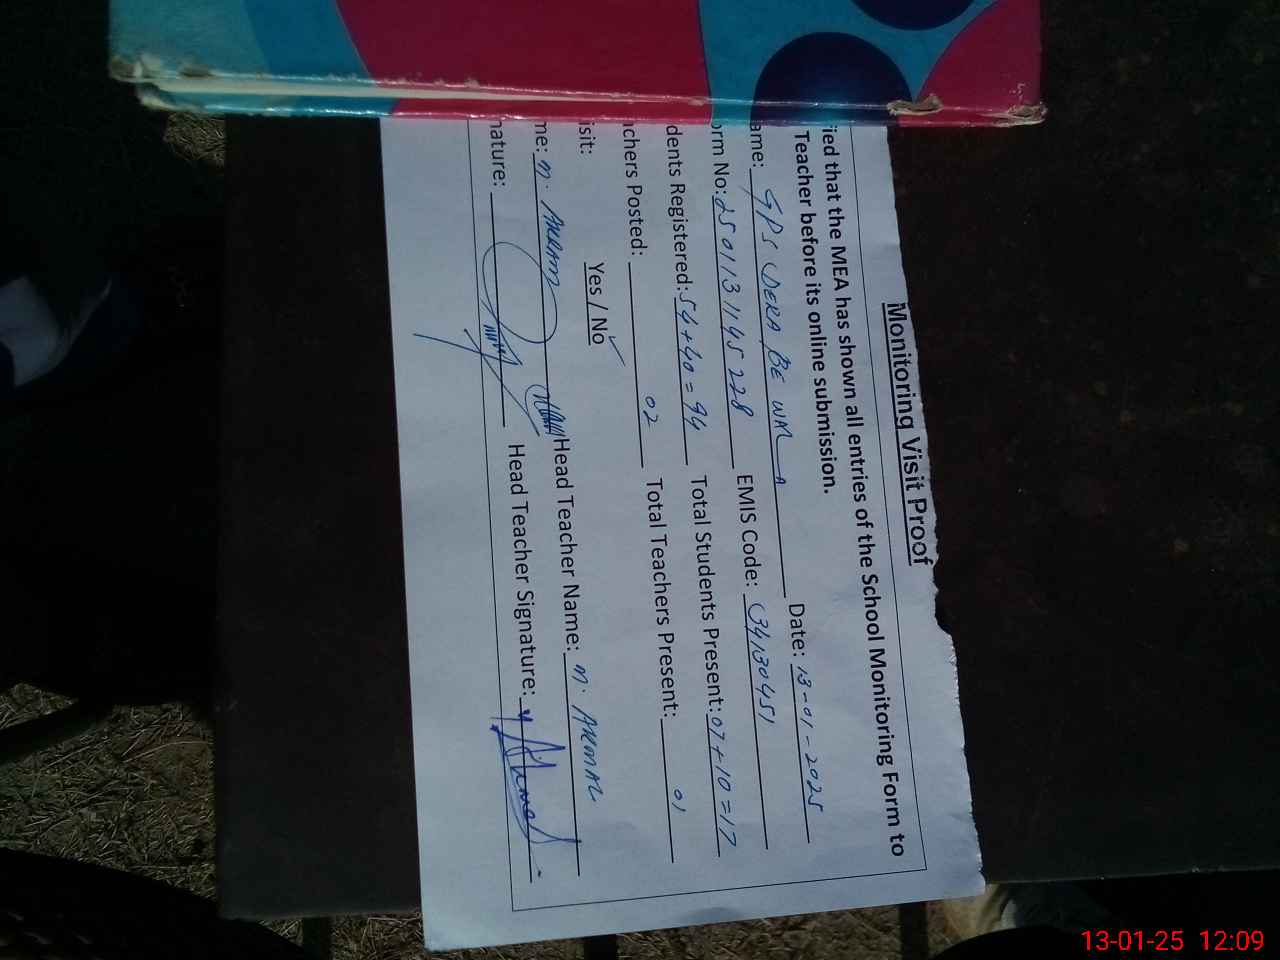 Monitoring Visit Proof
ied that the MEA has shown all entries of the School Monitoring Form to
Teacher before its online submission.
ame: GPS DERA BE WAL A Date: 13-01-2025
orm No: 250113 1145 228 EMIS Code: 34130451
dents Registered: 54+40=94 Total Students Present: 07+10=17
chers Posted: 02 Total Teachers Present: 01
isit: Yes / No ✓
me: M. AKRAM Head Teacher Name: M. AKMAL
nature: Head Teacher Signature:
13-01-25 12:09